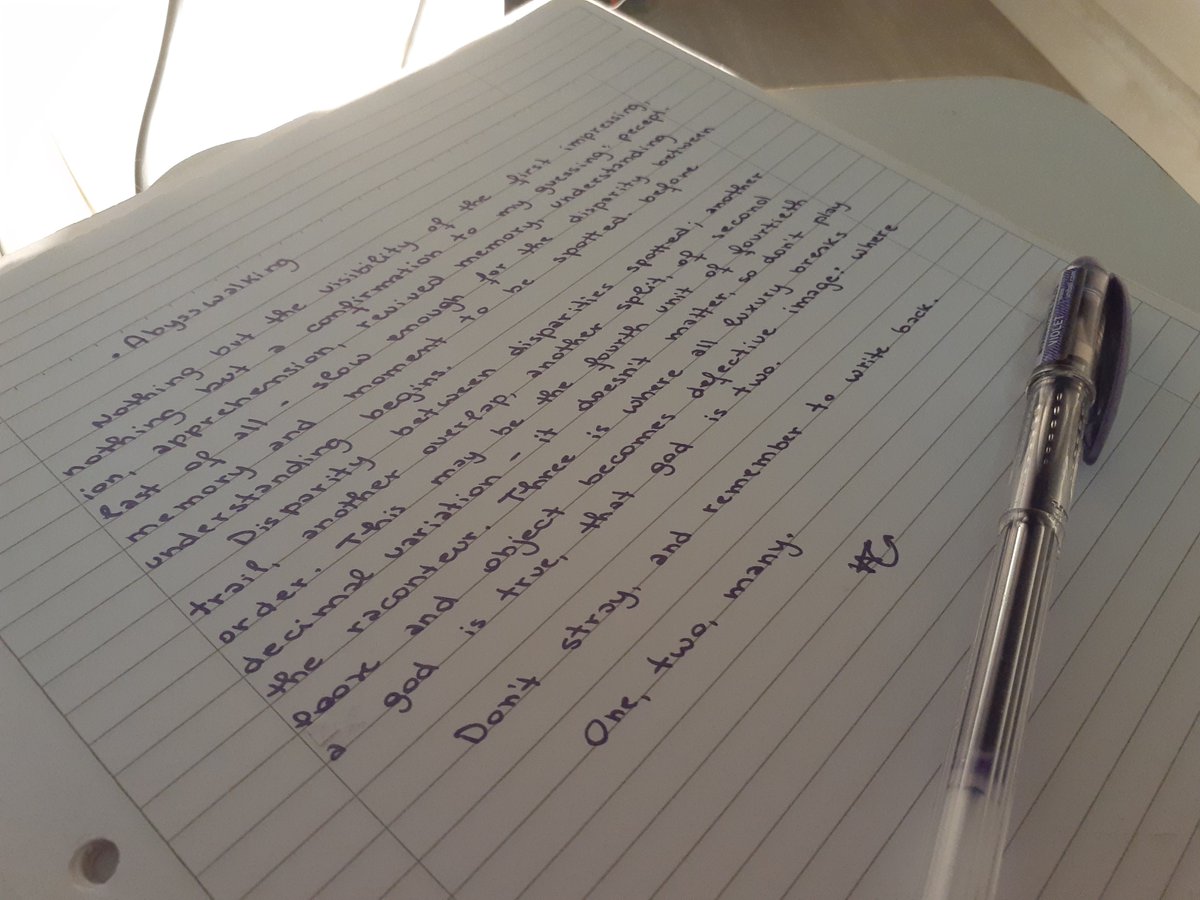 . Abysswalking
Nothing but the visibility of the first impressing,
nothing but a confirmation to my guessing; percept-
ion, apprehension, revived memory, understanding
last of all - slow enough for the disparity between
memory and moment to be spotted. before
understanding begins.
Disparity between disparities spotted; another
trail, another overlap, another split, of second
order. This may be the fourth unit of fourtieth
decimal variation - it doesn't matter, so don't play
the raconteur. Three is where all luxury breaks
loose and object becomes defective image: where
a god is true, that god is two.
Don't stray, and remember to write back.
One, two, many.
VIOLET